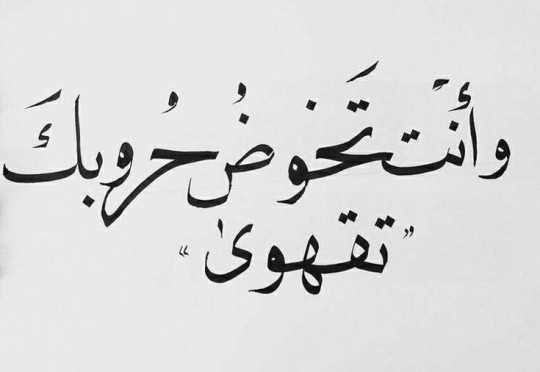 وأنتَ تَخوضُ حُروبكَ
" تقهوىٰ "